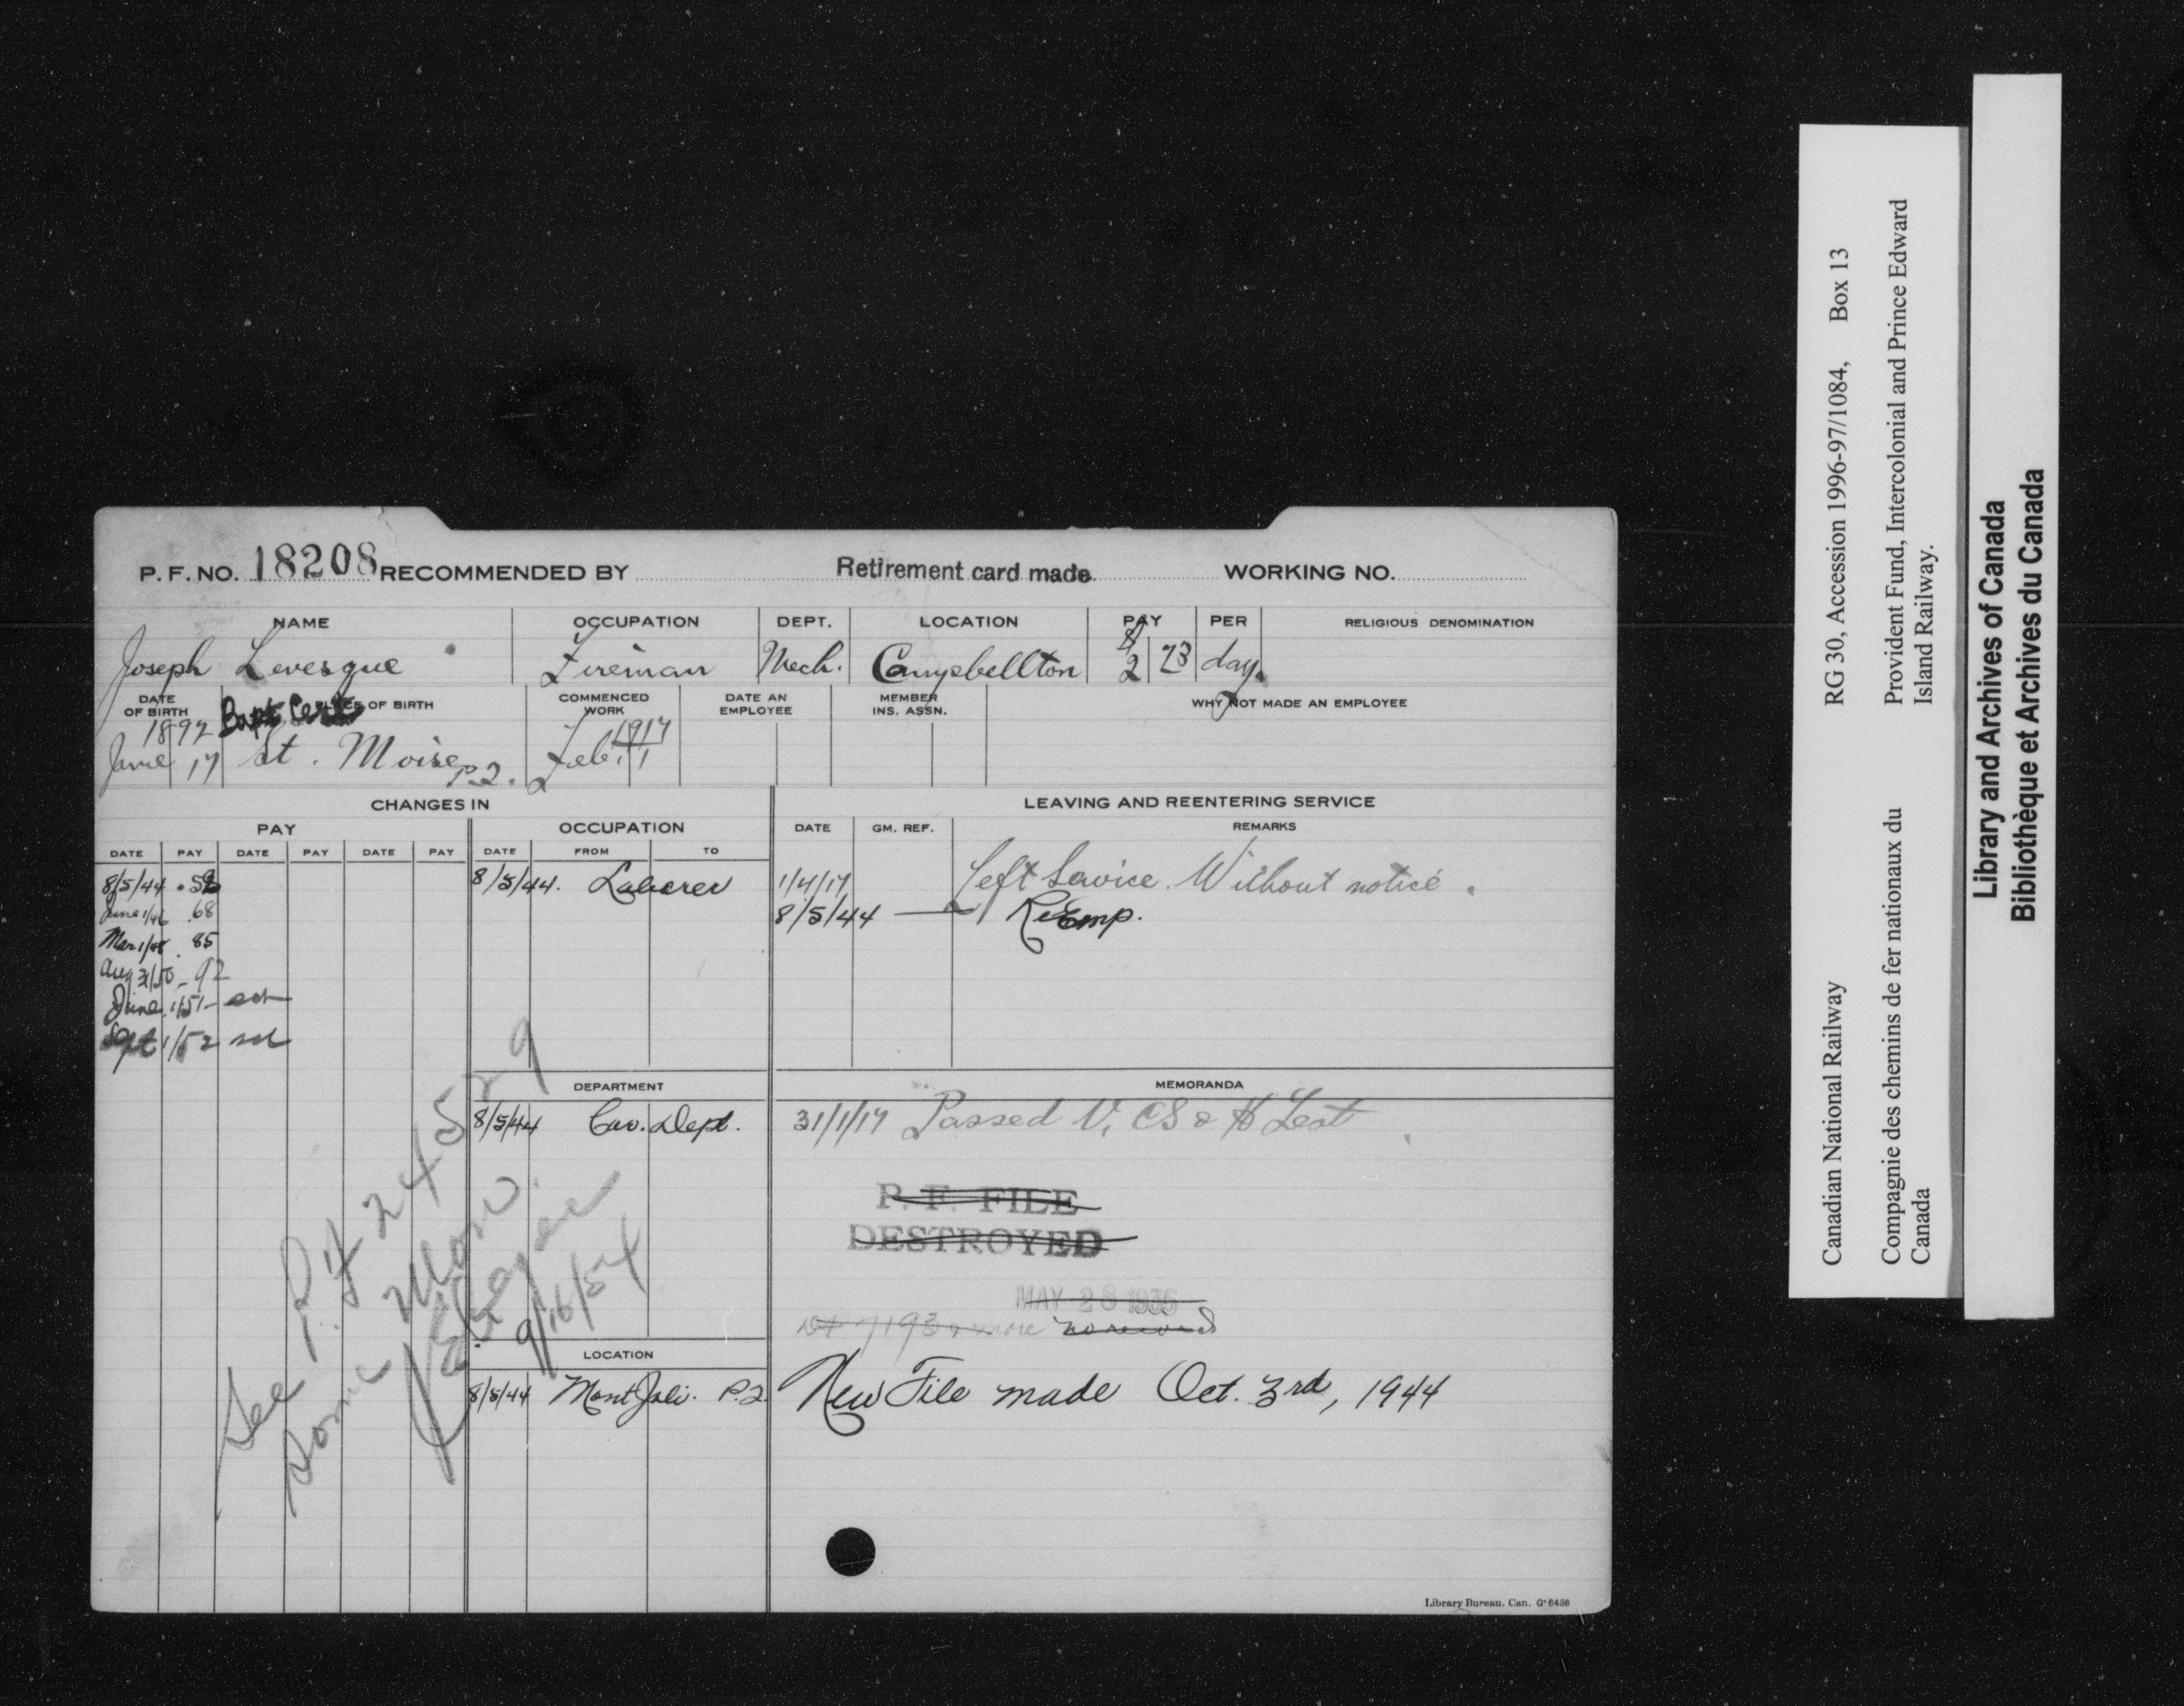 P. F. NO. 18208 RECOMMENDED BY Retirement card made. WORKING NO.
NAME OCCUPATION DEPT. LOCATION PAY PER RELIGIOUS DENOMINATION
Joseph Levesque Fireman Mech. Campbellton $2 73 day.
DATE OF BIRTH PLACE OF BIRTH COMMENCED WORK DATE AN EMPLOYEE MEMBER INS. ASSN. WHY NOT MADE AN EMPLOYEE
Bapt. Cert.
1892 1917
June 17 St. Moise P.Q. Feb. 1
CHANGES IN LEAVING AND REENTERING SERVICE
PAY OCCUPATION DATE GM. REF. REMARKS
DATE PAY DATE PAY DATE PAY DATE FROM TO
8/5/44 8/5/44. Laborer 1/4/17 Left Service. Without notice.
June 1/46 .68 8/5/44 — ReEmp.
Mar 1/48 .85
Aug 31/50 - 92
June 1/51 - sch
Sept 1/52 sch
DEPARTMENT MEMORANDA
8/5/44 Car. Dept. 31/1/17 Passed V, CS & H Test
P. F. FILE
DESTROYED
MAY 28 1935
no record
LOCATION
8/5/44 Mont Joli. P.Q. New File made Oct. 3rd, 1944
See P.F 24529
same man
9/16/54
Library Bureau. Can. G'6436
Canadian National Railway RG 30, Accession 1996-97/1084, Box 13
Compagnie des chemins de fer nationaux du Canada
Provident Fund, Intercolonial and Prince Edward Island Railway.
Library and Archives of Canada
Bibliothèque et Archives du Canada